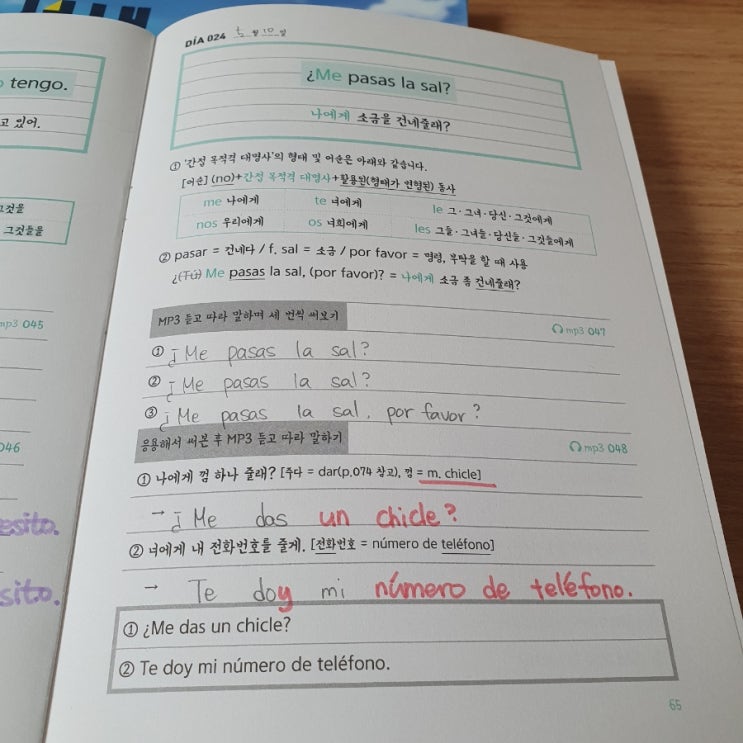 tengo.
고 있어.
그것을
그것들을
mp3 045
046
esito.
sito.
DÍA 024 5 월 10 일
¿Me pasas la sal?
나에게 소금을 건네줄래?
① '간접 목적격 대명사'의 형태 및 어순은 아래와 같습니다.
[어순] (no)+간접 목적격 대명사+활용된(형태가 변형된) 동사
me 나에게 te 너에게 le 그·그녀·당신·그것에게
nos 우리에게 os 너희에게 les 그들·그녀들·당신들·그것들에게
② pasar = 건네다 / f. sal = 소금 / por favor = 명령, 부탁을 할 때 사용
¿(Tú) Me pasas la sal, (por favor)? = 나에게 소금 좀 건네줄래?
MP3 듣고 따라 말하며 세 번씩 써보기
mp3 047
① ¿Me pasas la sal?
② ¿Me pasas la sal?
③ ¿Me pasas la sal, por favor?
응용해서 써본 후 MP3 듣고 따라 말하기
mp3 048
① 나에게 껌 하나 줄래? [주다 = dar(p.074 참고), 껌 = m. chicle]
→ ¿Me das un chicle?
② 너에게 내 전화번호를 줄게. [전화번호 = número de teléfono]
→ Te doy mi número de teléfono.
① ¿Me das un chicle?
② Te doy mi número de teléfono.
65